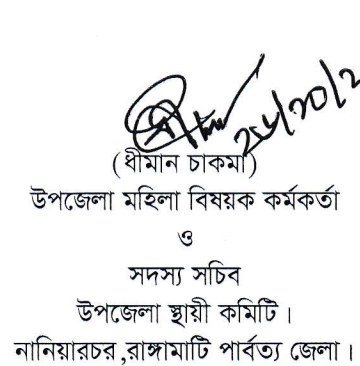 (ধীমান চাকমা)
উপজেলা মহিলা বিষয়ক কর্মকর্তা
ও
সদস্য সচিব
উপজেলা স্থায়ী কমিটি।
নানিয়ারচর,রাঙ্গামাটি পার্বত্য জেলা।